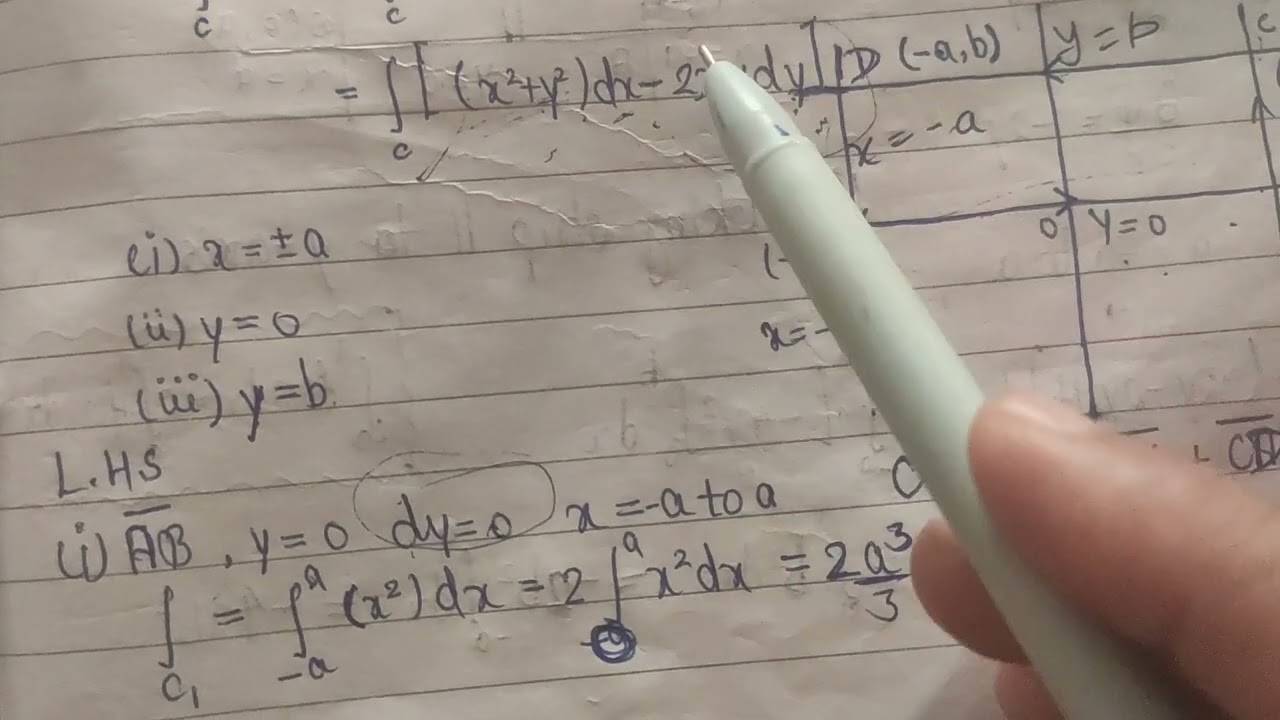 c c
= ∫c [(x²+y²)dx - 2 dy]
D (-a,b) y=b c
x=-a
0 y=0
(i) x=±a
(ii) y=0
x=-
(iii) y=b
L.H.S
CD
(i) AB, y=0 dy=0 x=-a to a
∫C₁ = ∫-a^a (x²) dx = 2∫^a x²dx = 2a³/3